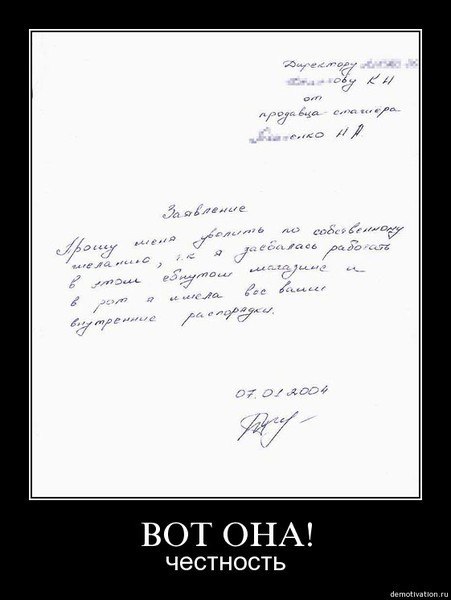 Директору
ову К Н
от
продавца-стажёра
енко Н А.
Заявление
Прошу меня уволить по собственному
желанию, т.к я заебалась работать
в этом ебнутом магазине и
в рот я имела все ваши
внутренние распорядки.
07.01.2004
ВОТ ОНА!
честность
demotivation.ru